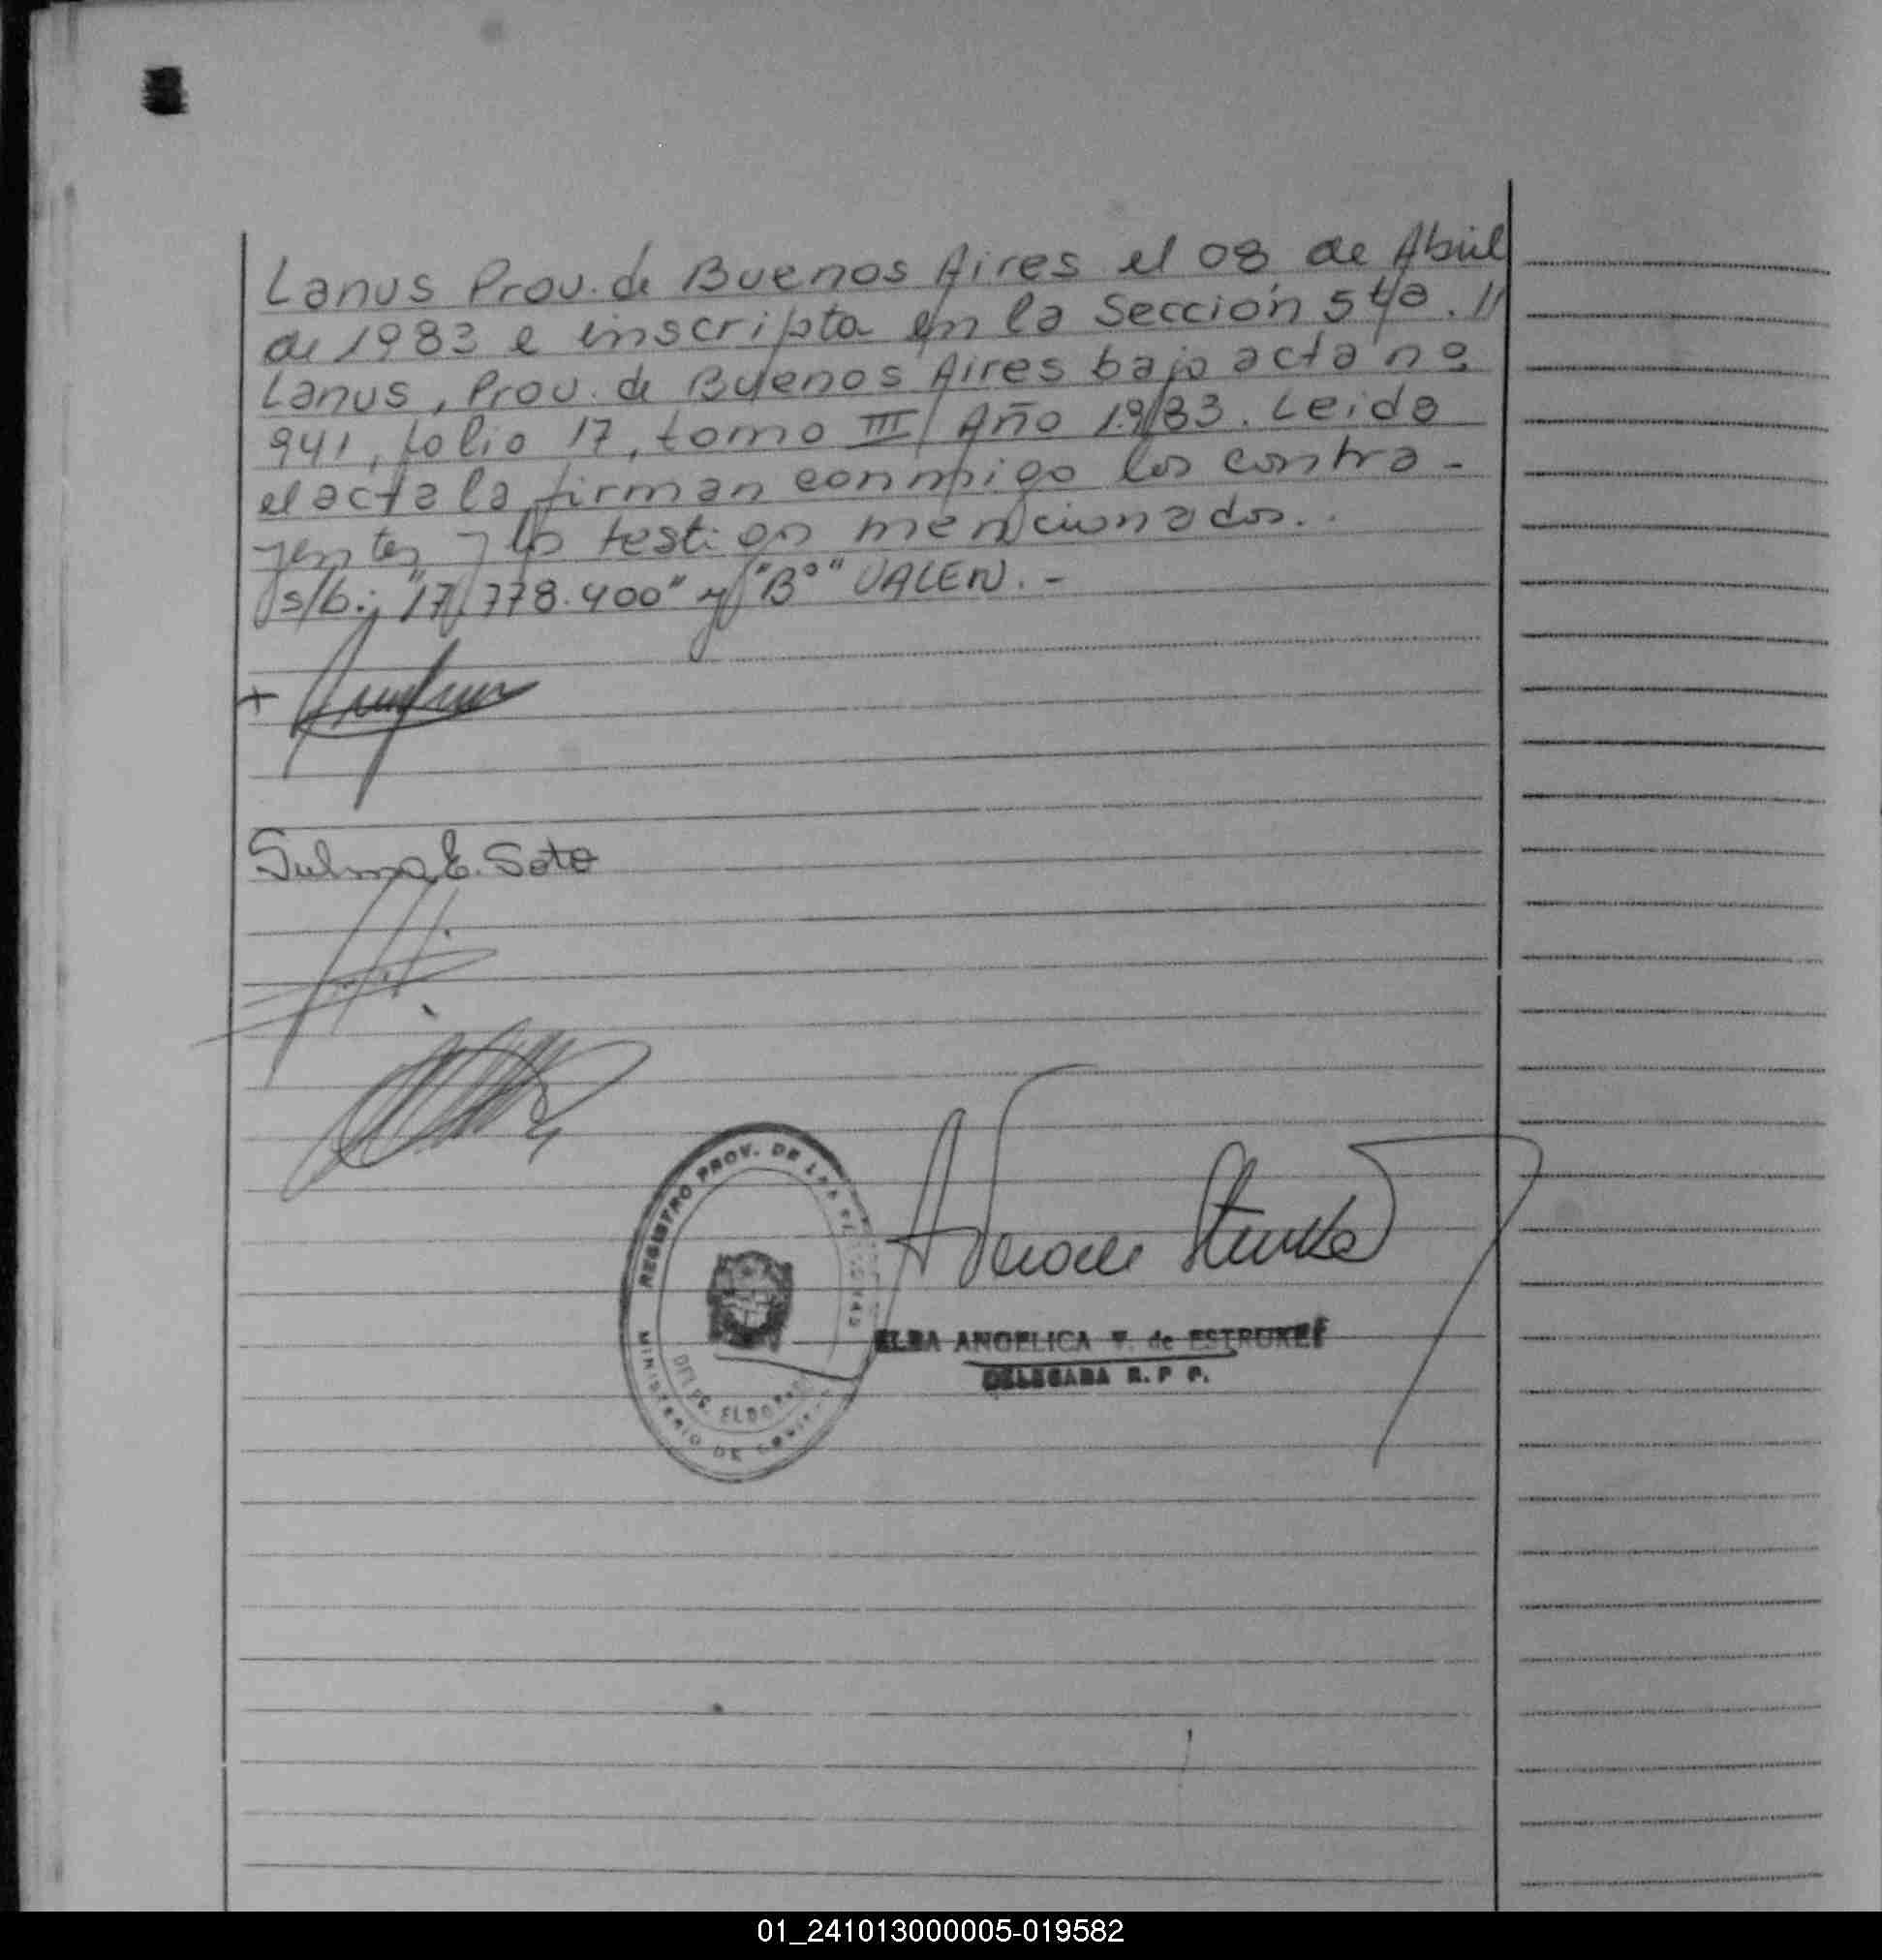 Lanus Prov. de Buenos Aires el 08 de Abril
de 1983 e inscripta en la Sección 5ta. //
Lanus, Prov. de Buenos Aires bajo acta nº
941, folio 17, tomo III Año 1983. Leida
el acta la firman conmigo los contra-
yentes y los testigos mencionados..
s/b: "17.778.400" y "Bº" VALEN.-
Sulma E. Soto
REGISTRO PROV. DE LAS
MINISTERIO DE
DELEG. ELDORADO
ELBA ANGELICA V. de ESTRUKEL
DELEGADA R. P P.
01_241013000005-019582